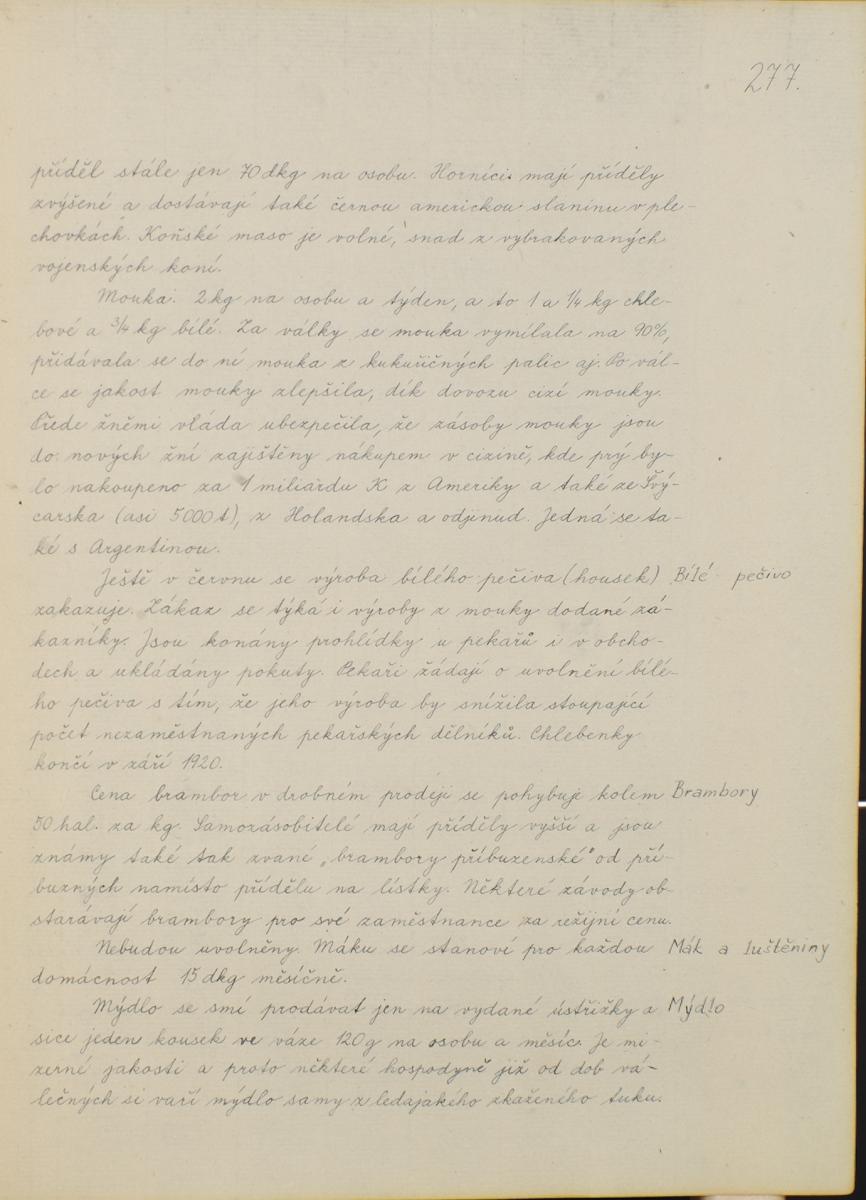 277.
příděl stále jen 70 dkg na osobu. Horníci mají příděly
zvýšené a dostávají také černou americkou slaninu v ple-
chovkách. Koňské maso je volné, snad z vybrakovaných
vojenských koní.
Mouka. 2 kg na osobu a týden, a to 1 a 1/4 kg chle-
bové a 3/4 kg bílé. Za války se mouka vymílala na 90%,
přidávala se do ní mouka z kukuřičných palic aj. Po vál-
ce se jakost mouky zlepšila, dík dovozu cizí mouky.
Přede žněmi vláda ubezpečila, že zásoby mouky jsou
do nových žní zajištěny nákupem v cizině, kde prý by-
lo nakoupeno za 1 miliardu K z Ameriky a také ze Švý-
carska (asi 5000 t), z Holandska a odjinud. Jedná se ta-
ké s Argentinou.
Ještě v červnu se výroba bílého pečiva (housek) Bílé pečivo
zakazuje. Zákaz se týká i výroby z mouky dodané zá-
kazníky. Jsou konány prohlídky u pekařů i v obcho-
dech a ukládány pokuty. Pekaři žádají o uvolnění bílé-
ho pečiva s tím, že jeho výroba by snížila stoupající
počet nezaměstnaných pekařských dělníků. Chlebenky
končí v září 1920.
Cena brambor v drobném prodeji se pohybuje kolem Brambory
50 hal. za kg. Samozásobitelé mají příděly vyšší a jsou
známy také tak zvané „brambory příbuzenské" od pří-
buzných namísto přídělu na lístky. Některé závody ob-
starávají brambory pro své zaměstnance za režijní cenu.
Nebudou uvolněny. Máku se stanoví pro každou Mák a luštěniny
domácnost 15 dkg měsíčně.
Mýdlo se smí prodávat jen na vydané ústřižky a Mýdlo
sice jeden kousek ve váze 120 g na osobu a měsíc. Je mi-
zerné jakosti a proto některé hospodyně již od dob vá-
lečných si vaří mýdlo samy z ledajakého zkaženého tuku.